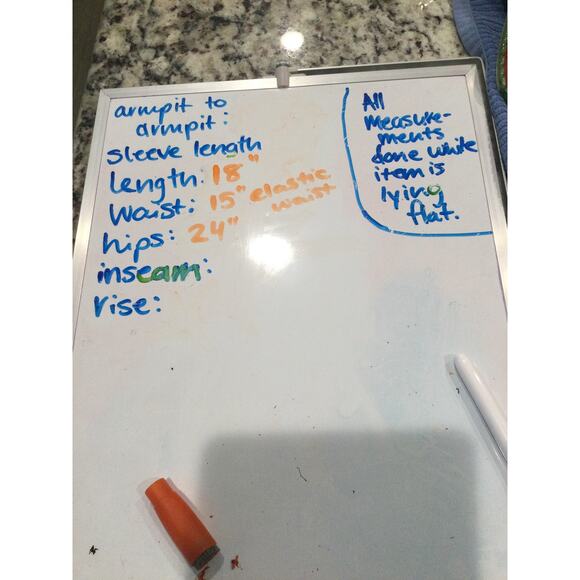 armpit to
armpit:
sleeve length
length: 18"
Waist: 15" elastic
waist
hips: 24"
inseam:
rise:
All
measure-
ments
done while
item is
lying
flat.